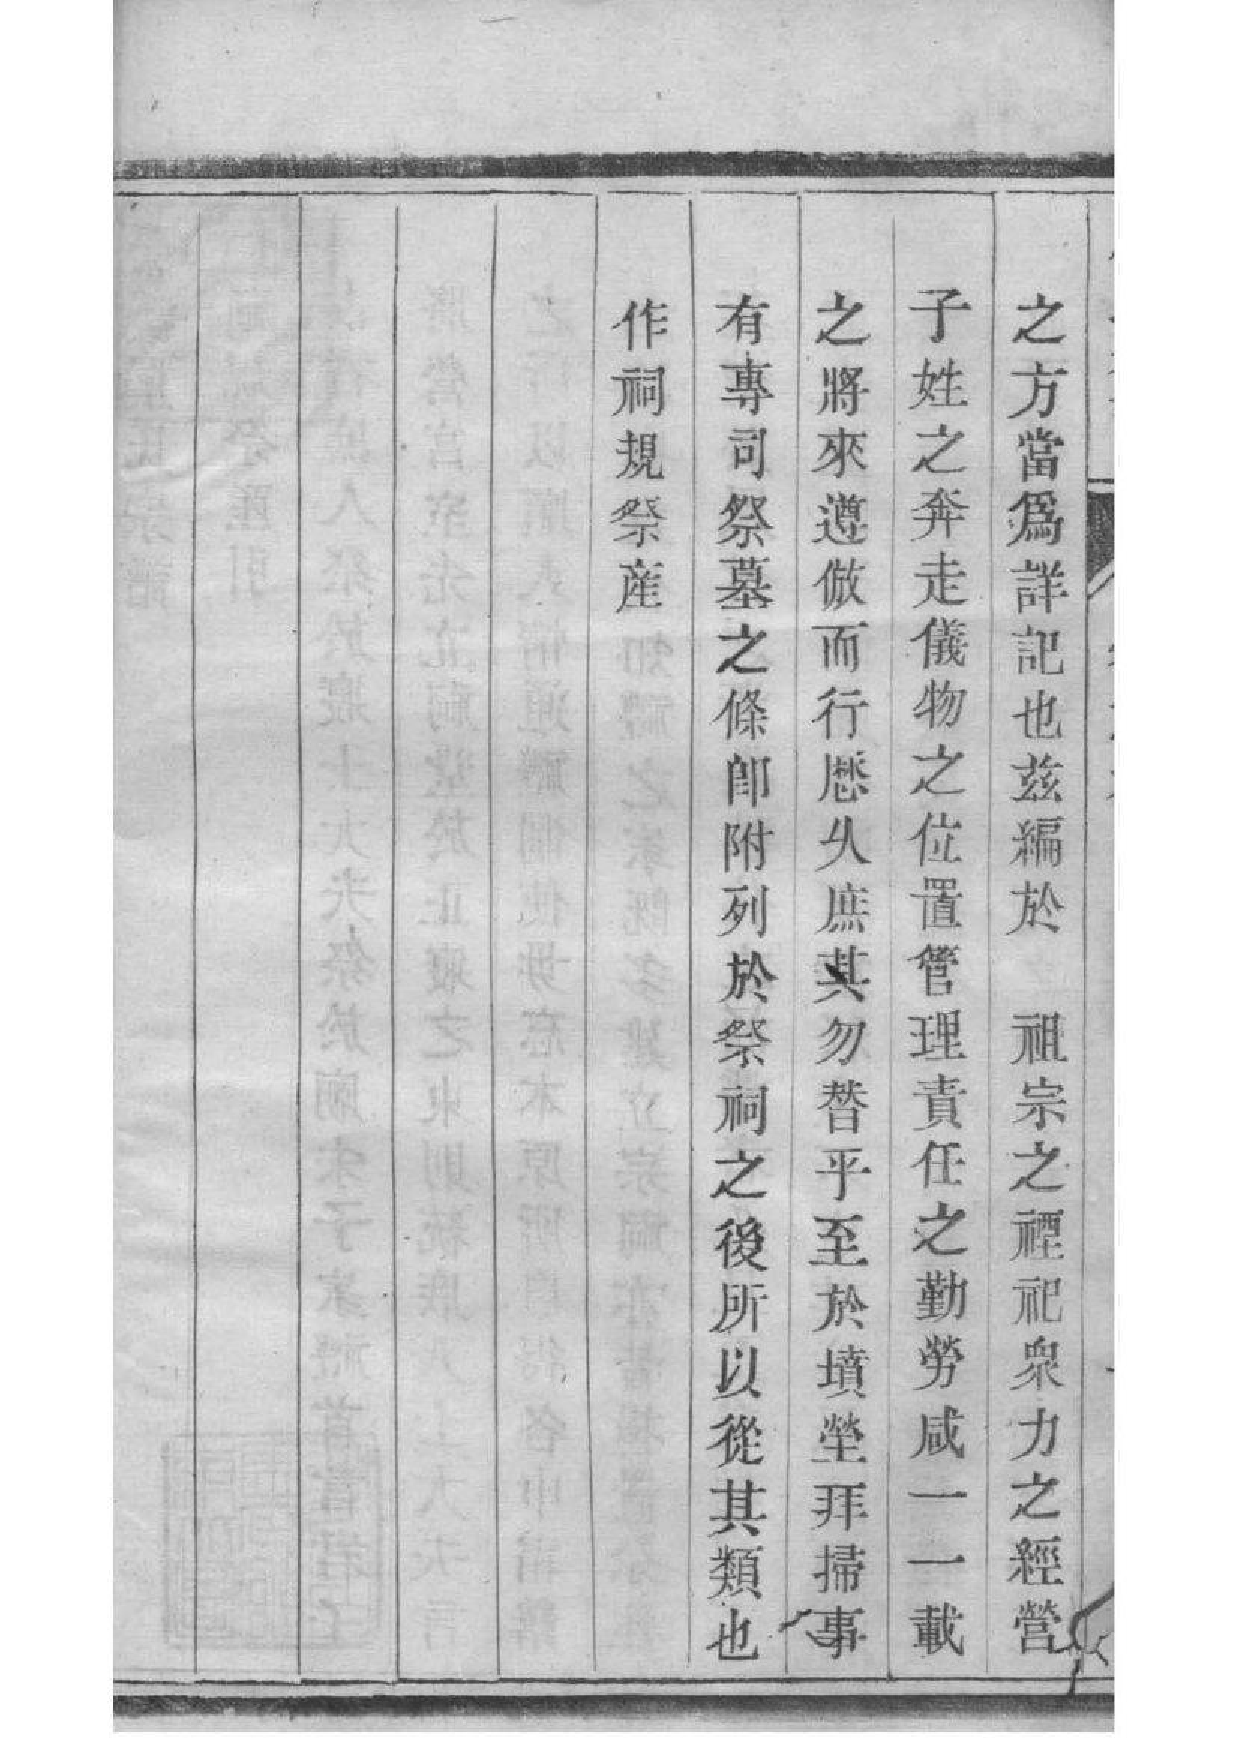 之方當爲詳記也兹編於　祖宗之禋祀衆力之經營
子姓之奔走儀物之位置管理責任之勤勞咸一一載
之將來遵倣而行懸久庶其勿替乎至於墳塋拜掃事
有專司祭墓之條卽附列於祭祠之後所以從其類也
作祠規祭産